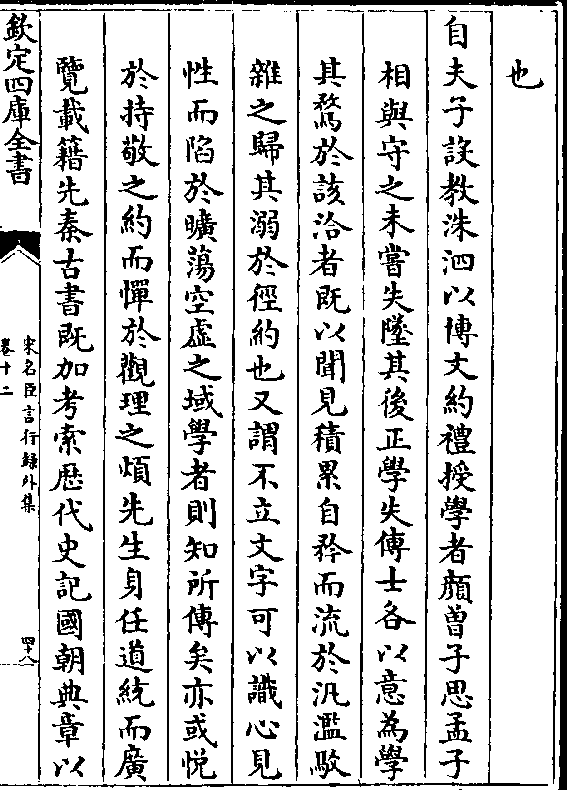 也
自夫子設教洙泗以博文約禮授學者顏曾子思孟子
相與守之未嘗失墜其後正學失傳士各以意為學
其騖於該洽者既以聞見積累自矜而流於汎濫駁
雜之歸其溺於徑約也又謂不立文字可以識心見
性而陷於曠蕩空虛之域學者則知所傳矣亦或悅
於持敬之約而憚於觀理之煩先生身任道統而廣
覽載籍先秦古書既加考索歷代史記國朝典章以
欽定四庫全書
宋名臣言行録外集
卷十二
四十八